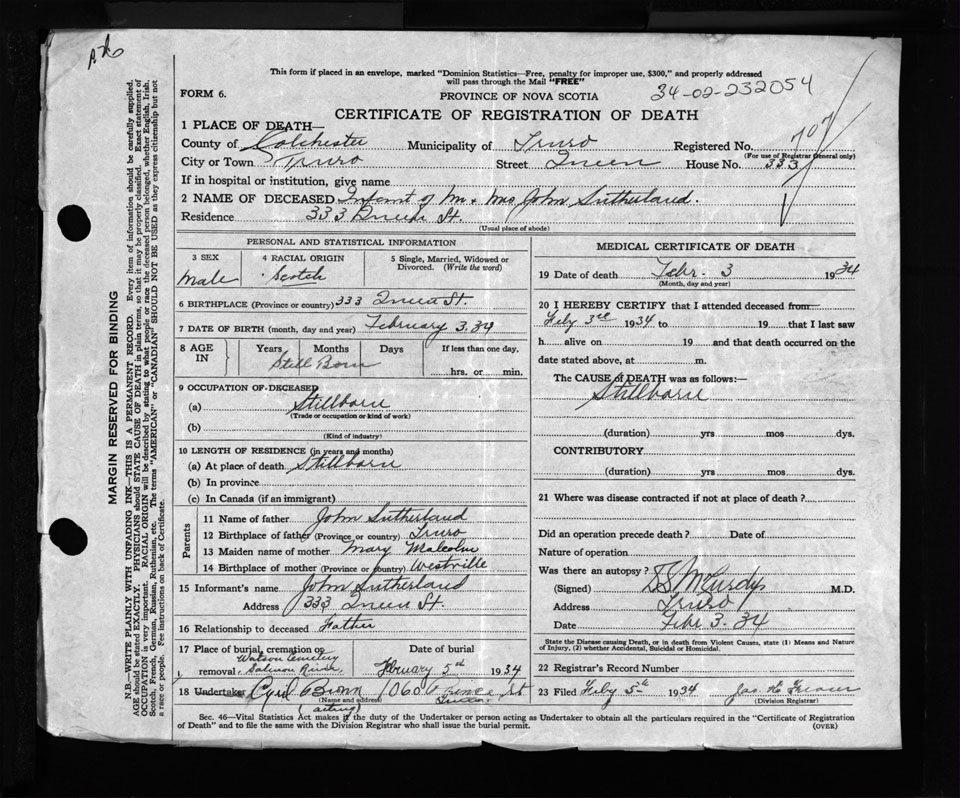 This form if placed in an envelope, marked "Dominion Statistics—Free, penalty for improper use, $300," and properly addressed
will pass through the Mail "FREE"
FORM 6.
PROVINCE OF NOVA SCOTIA
34-02-232054
CERTIFICATE OF REGISTRATION OF DEATH
1 PLACE OF DEATH—
707
County of Colchester Municipality of Truro Registered No.
(For use of Registrar General only)
City or Town Truro Street Queen House No. 333
If in hospital or institution, give name
2 NAME OF DECEASED Infant of Mr & Mrs John Sutherland.
Residence 333 Queen St.
(Usual place of abode)
PERSONAL AND STATISTICAL INFORMATION
3 SEX 4 RACIAL ORIGIN 5 Single, Married, Widowed or
Divorced. (Write the word)
Male Scotch
6 BIRTHPLACE (Province or country) 333 Queen St.
7 DATE OF BIRTH (month, day and year) February 3. 34
8 AGE IN Years Months Days If less than one day.
Still Born
hrs. or min.
9 OCCUPATION OF DECEASED
(a) Stillborn
(Trade or occupation or kind of work)
(b)
(Kind of industry)
10 LENGTH OF RESIDENCE (in years and months)
(a) At place of death Stillborn
(b) In province
(c) In Canada (if an immigrant)
Parents
11 Name of father John Sutherland
12 Birthplace of father (Province or country) Truro
13 Maiden name of mother Mary Malcolm
14 Birthplace of mother (Province or country) Westville
15 Informant's name John Sutherland
Address 333 Queen St.
16 Relationship to deceased Father
17 Place of burial, cremation or Date of burial
Watson Cemetery
removal Salmon River February 5th 1934
18 Undertaker Cyril Binn 060 Prince St
(Name and address) Truro
(acting)
MEDICAL CERTIFICATE OF DEATH
19 Date of death Febr. 3 1934
(Month, day and year)
20 I HEREBY CERTIFY that I attended deceased from
Feby 3rd 1934 to 19 that I last saw
h alive on 19 and that death occurred on the
date stated above, at m.
The CAUSE of DEATH was as follows:—
Stillborn
(duration) yrs mos dys.
CONTRIBUTORY
(duration) yrs mos dys.
21 Where was disease contracted if not at place of death?
Did an operation precede death? Date of
Nature of operation
Was there an autopsy?
(Signed) McCurdy M.D.
Address Truro
Date Febr 3. 34
State the Disease causing Death, or in death from Violent Causes, state (1) Means and Nature
of Injury, (2) whether Accidental, Suicidal or Homicidal.
22 Registrar's Record Number
23 Filed Feby 5th 1934
(Division Registrar)
Sec. 46—Vital Statistics Act makes it the duty of the Undertaker or person acting as Undertaker to obtain all the particulars required in the "Certificate of Registration
of Death" and to file the same with the Division Registrar who shall issue the burial permit.
(OVER)
MARGIN RESERVED FOR BINDING
N.B.—WRITE PLAINLY WITH UNFADING INK—THIS IS A PERMANENT RECORD. Every item of information should be carefully supplied.
AGE should be stated EXACTLY. PHYSICIANS should STATE CAUSE OF DEATH in plain terms, so that it may be properly classified. Exact statement of
OCCUPATION is very important. RACIAL ORIGIN will be described by stating to what people or race the deceased person belonged, whether English, Irish,
Scotch, French, German, Russian, Ruthenian, etc. The terms "AMERICAN" or "CANADIAN" SHOULD NOT BE USED as they express citizenship but not
a race or people. Fee instructions on back of Certificate.